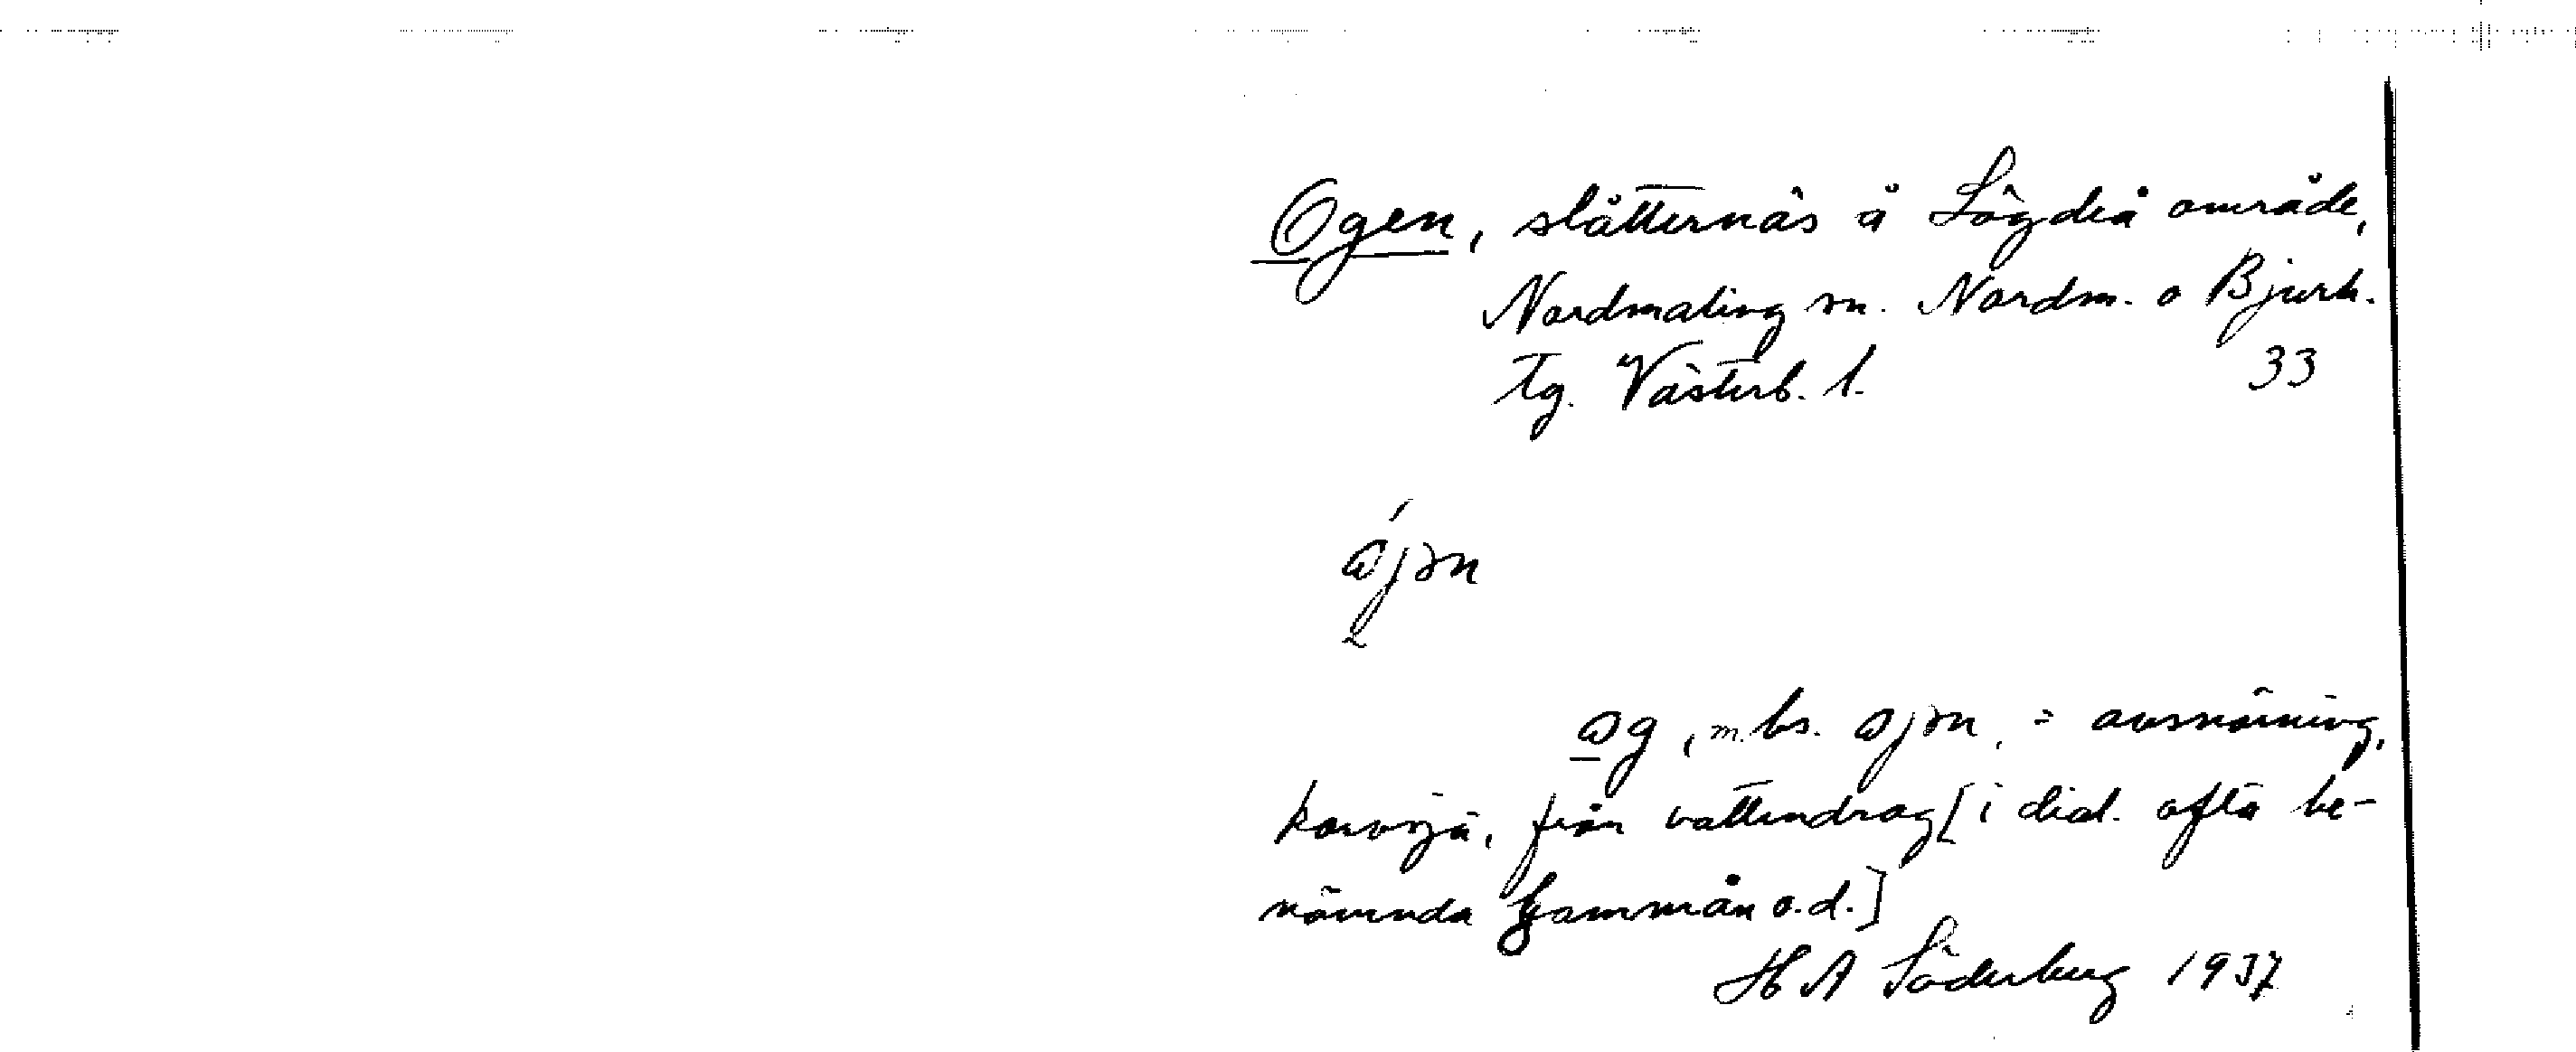 Ogen, slåtternäs å Lögdeå område,
Nordmaling sn. Nordm. o Bjurh.
tg. Västerb. l. 33
ɷjən
ɷg, m. bs. ɷjən, = avsnörning,
korvsjö, från vattendrag [i dial. ofta be-
nämnda Gammån o.d.]
H A Söderberg 1937